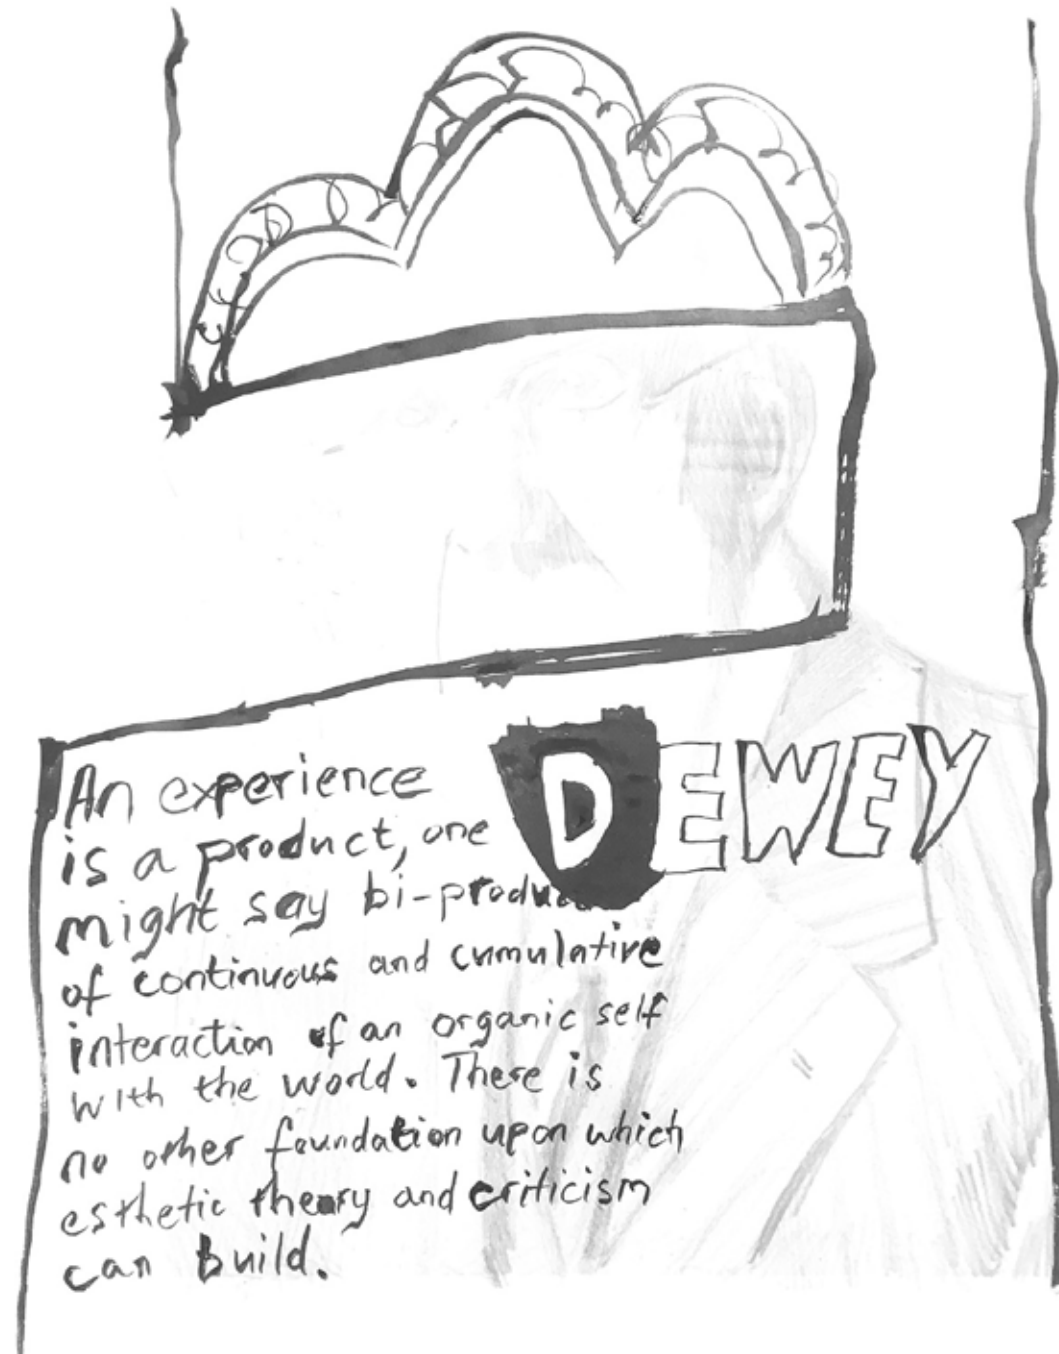 An experience
DEWEY
is a product, one
might say bi-produ
of continuous and cumulative
interaction of an organic self
with the world. There is
no other foundation upon which
esthetic theory and criticism
can build.